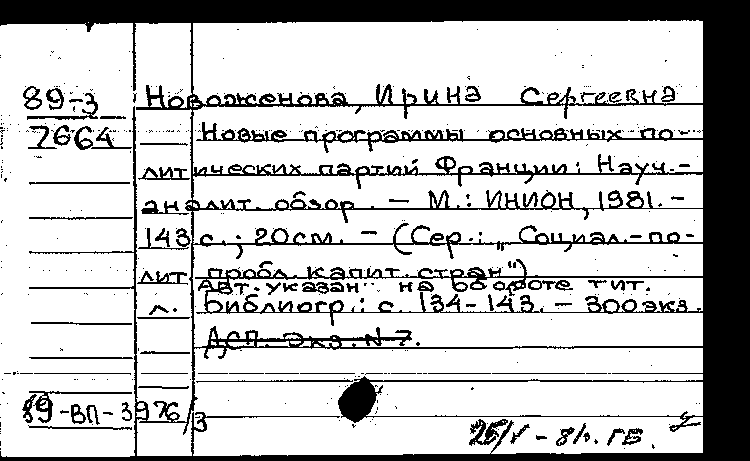 89-3 Новоженова, Ирина Сергеевна
7664 Новые программы основных по-
литических партий Франции: Науч.-
аналит. обзор. — М.: ИНИОН, 1981. -
143 с.; 20см. - (Сер.: „Социал.-по-
лит. пробл. капит. стран")
Авт. указан на обороте тит.
л. Библиогр.: с. 134-143. - 300 экз.
ДСП. Экз. N 7.
89-ВП-3976/3
25/V - 81. ГБ.